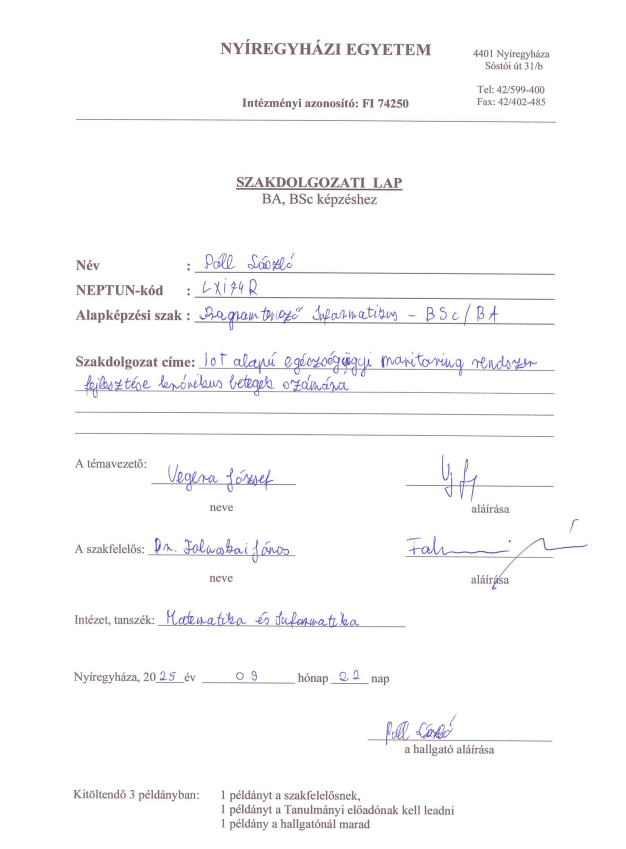 NYÍREGYHÁZI EGYETEM
4401 Nyíregyháza
Sóstói út 31/b
Tel: 42/599-400
Fax: 42/402-485
Intézményi azonosító: FI 74250
SZAKDOLGOZATI LAP
BA, BSc képzéshez
Név : Páll László
NEPTUN-kód : LXI74R
Alapképzési szak : Programtervező Informatikus - BSc/BA
Szakdolgozat címe: IoT alapú egészségügyi monitoring rendszer
fejlesztése krónikus betegek számára
A témavezető: Vegera József
neve aláírása
A szakfelelős: Dr. János
neve aláírása
Intézet, tanszék: Matematika és Informatika
Nyíregyháza, 2025 év 09 hónap 22 nap
Páll László
a hallgató aláírása
Kitöltendő 3 példányban: 1 példányt a szakfelelősnek,
1 példányt a Tanulmányi előadónak kell leadni
1 példány a hallgatónál marad